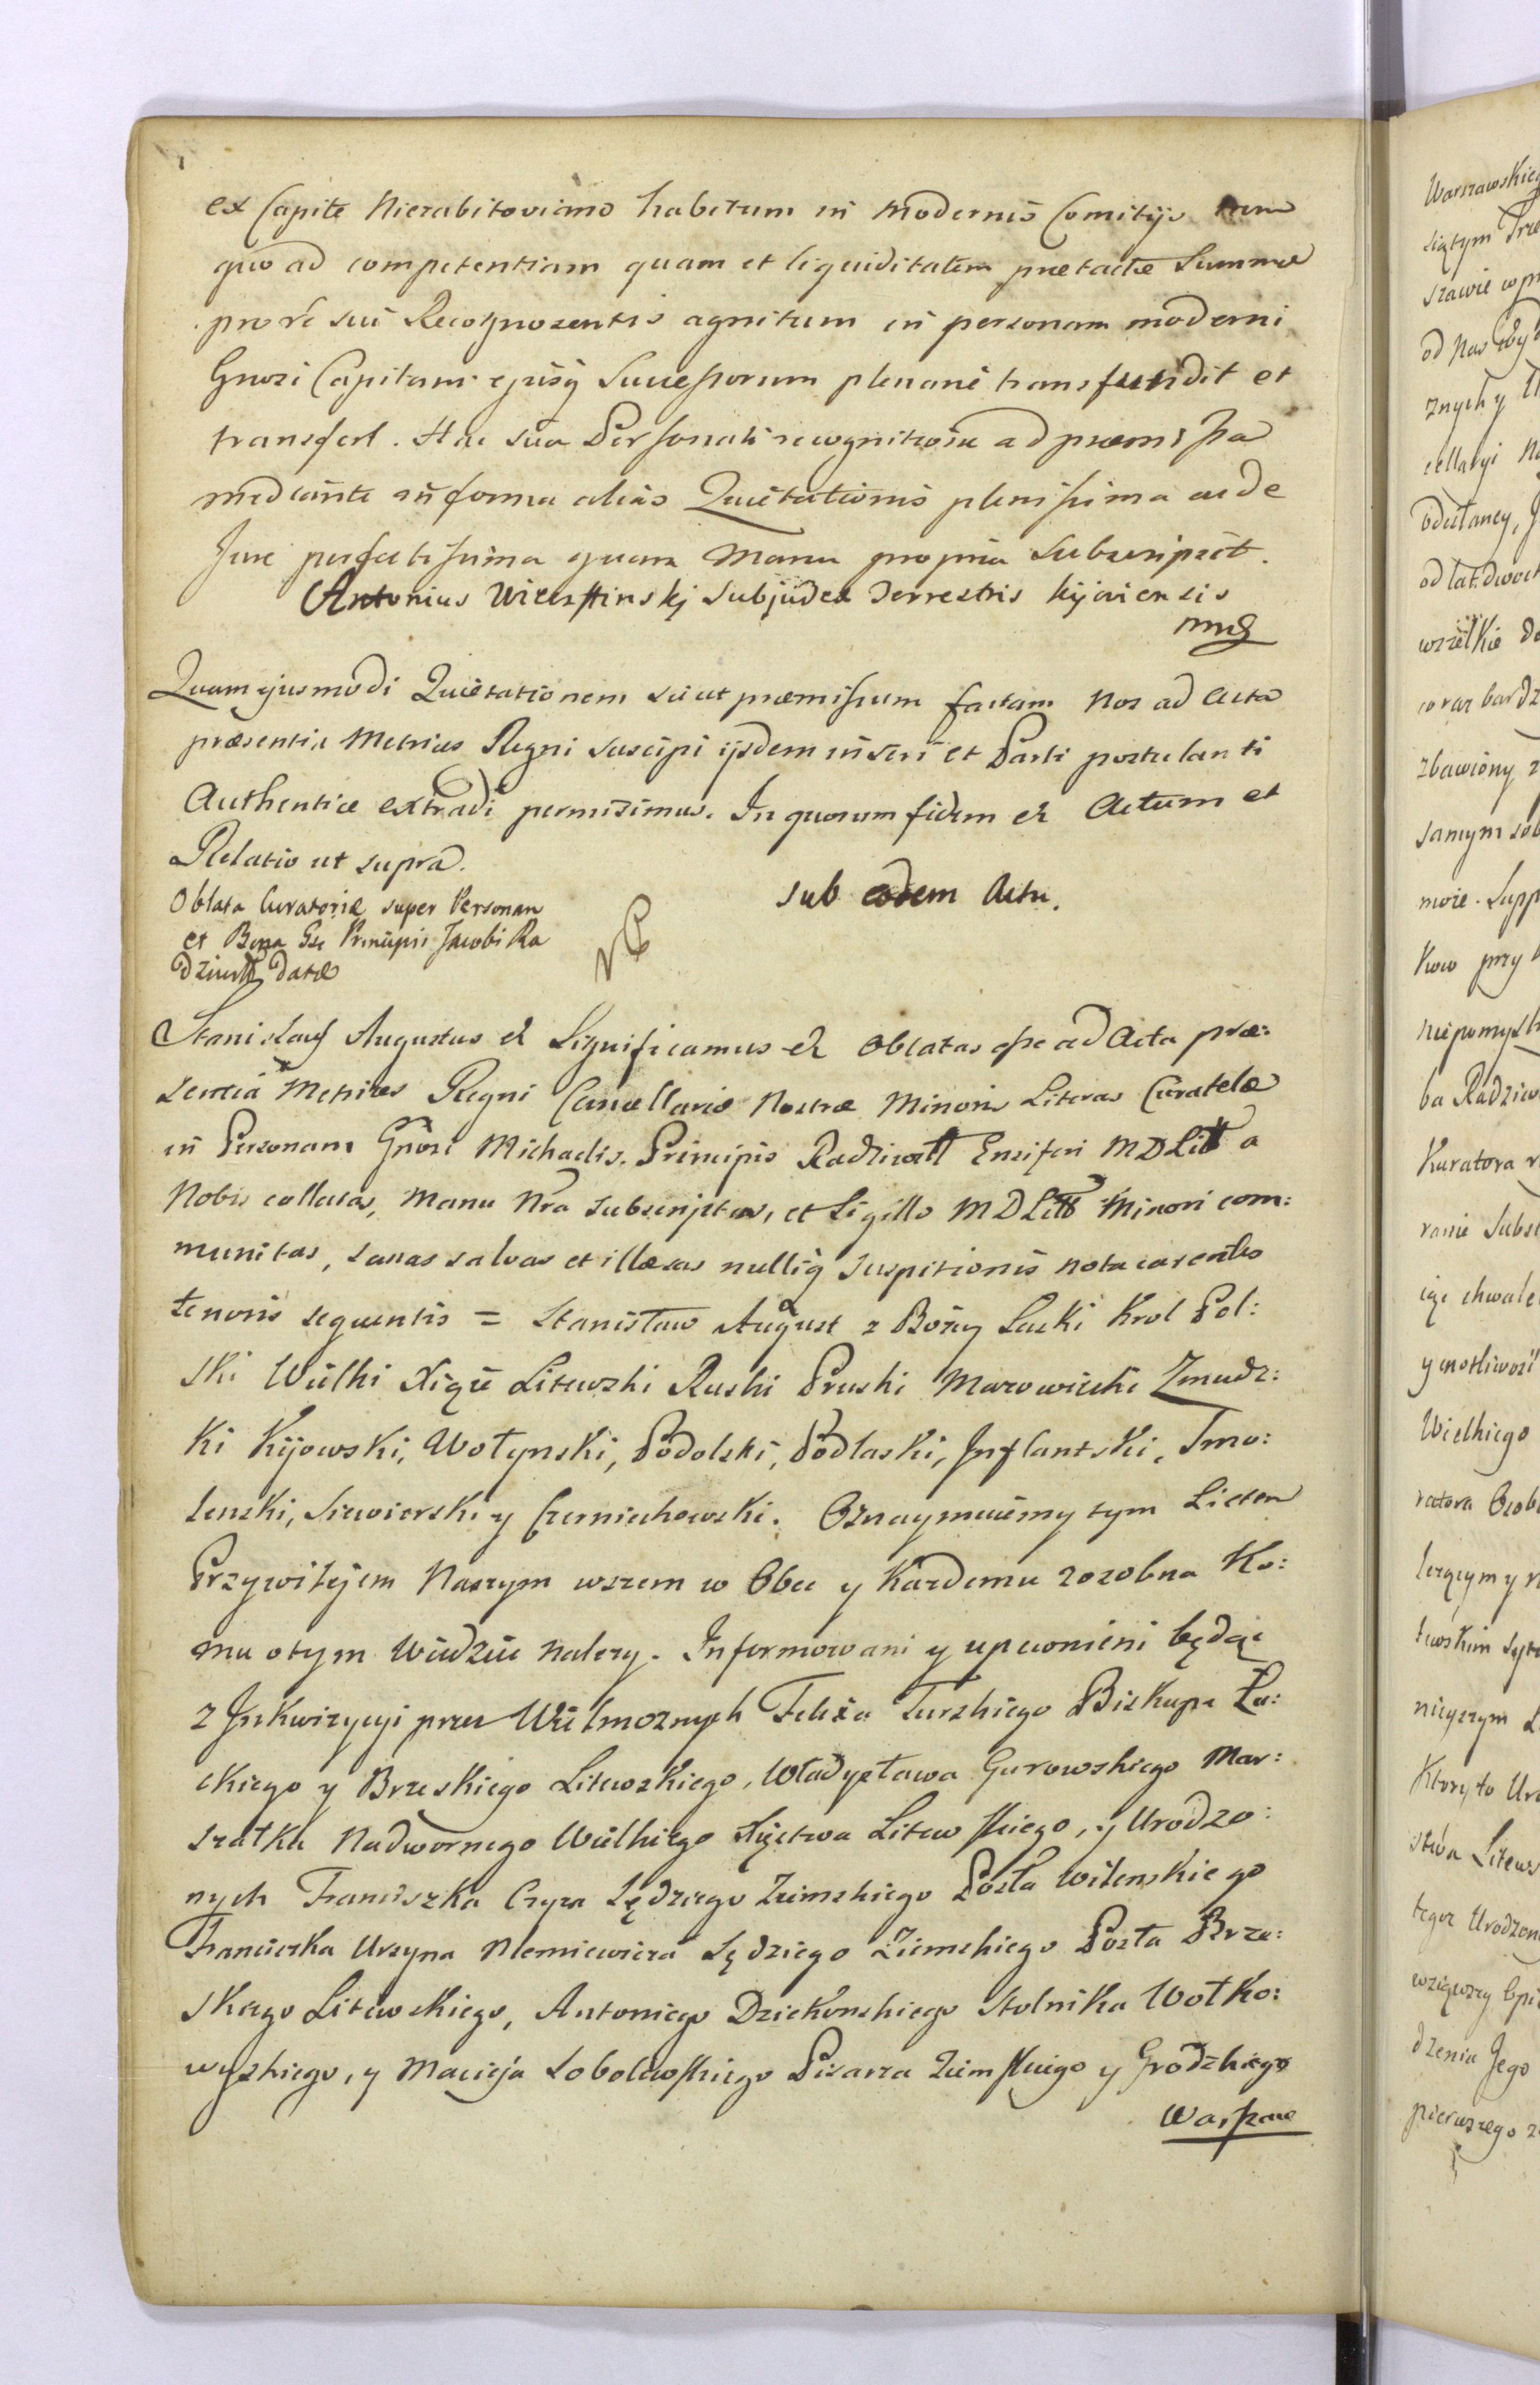 ex Capite Nierabitoviano habitum in modernis Comitijs tum
quo ad competentiam quam et liquiditatem praetactae Summae
pro re sui Recognoscentis agnitum in personam moderni
Gnosi Capitanei ejusq Successorum plenarie transfundit et
transfert. Hac sua Personali recognitione ad praemissa
mediante in forma alias Quietationis plenissima ac de
Jure perfectissima quam Manu propria Subscripsit.
Antonius Wierzstinskj Subjudex Terrestris Kijoviensis
mp
Quam ejusmodi Quietationem sicut praemissum factam Nos ad Acta
praesentia Metrices Regni suscipi ijsdem inseri et Parti postulanti
Authentice extradi permisimus. In quorum fidem et Actum et
Relatio ut supra.
Sub eodem Actu.
Oblata Curatoriae super Personam
et Bona Gsi Principis Jacobi Ra
dziwiłł datae
Stanislaus Augustus et Significamus et Oblatas esse ad Acta prae:
sentia Metrices Regni Cancellariae Nostrae Minoris Literas Curatelae
in Personam Gnosi Michaelis Principis Radziwiłł Ensiferi MDLitt a
Nobis collatas, Manu Nra subscriptas, et Sigillo MDLitt Minori com:
munitas, sanas salvas et illaesas nulliq suspitionis nota carentes
tenoris sequentis = Stanisław August z Bożey Łaski Krol Pol:
ski Wielki Xiąże Litewski Ruski Pruski Mazowiecki Zmudz:
ki Kijowski, Wołynski, Podolski, Podlaski, Inflantski, Smo:
lenski, Siewierski y Czerniechowski. Oznaymuiemy tym Listem
Przywilejem Naszym wszem w Obec y Kazdemu zosobna Ko:
mu otym Wiedziec nalezy. Informowani y upewnieni będąc
z Inkwizycyi przez Wielmoznych Felixa Turskiego Biskupa Łu:
ckiego y Brzeskiego Litewskiego, Władysława Gurowskiego Mar:
szałka Nadwornego Wielkiego Xięstwa Litewskiego, y Urodzo:
nych Franciszka Czyza Sędziego Ziemskiego Posła Wilenskiego
Franciszka Urzyna Niemiewicza Sędziego Ziemskiego Posła Brze:
skiego Litewskiego, Antoniego Dziekonskiego Stolnika Wołko:
wyskiego, y Macieja Sobolewskiego Pisarza Ziemskiego y Grodzkiego
Warszaw